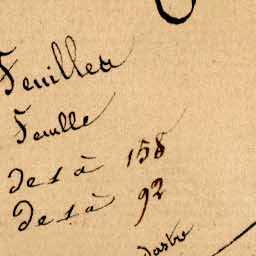 Feuilles
Feuille
de 1 à 158
de 1 à 92